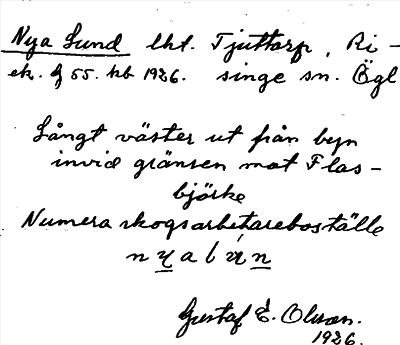 Nya Lund lht. Tjuttorp, Ri-
ek. bl 55. hb 1926. singe sn. Ögl
Långt väster ut från byn
invid gränsen mot Flas-
björke
Numera skogsarbetareboställe
nyalún
Gustaf E. Olsson.
1926.